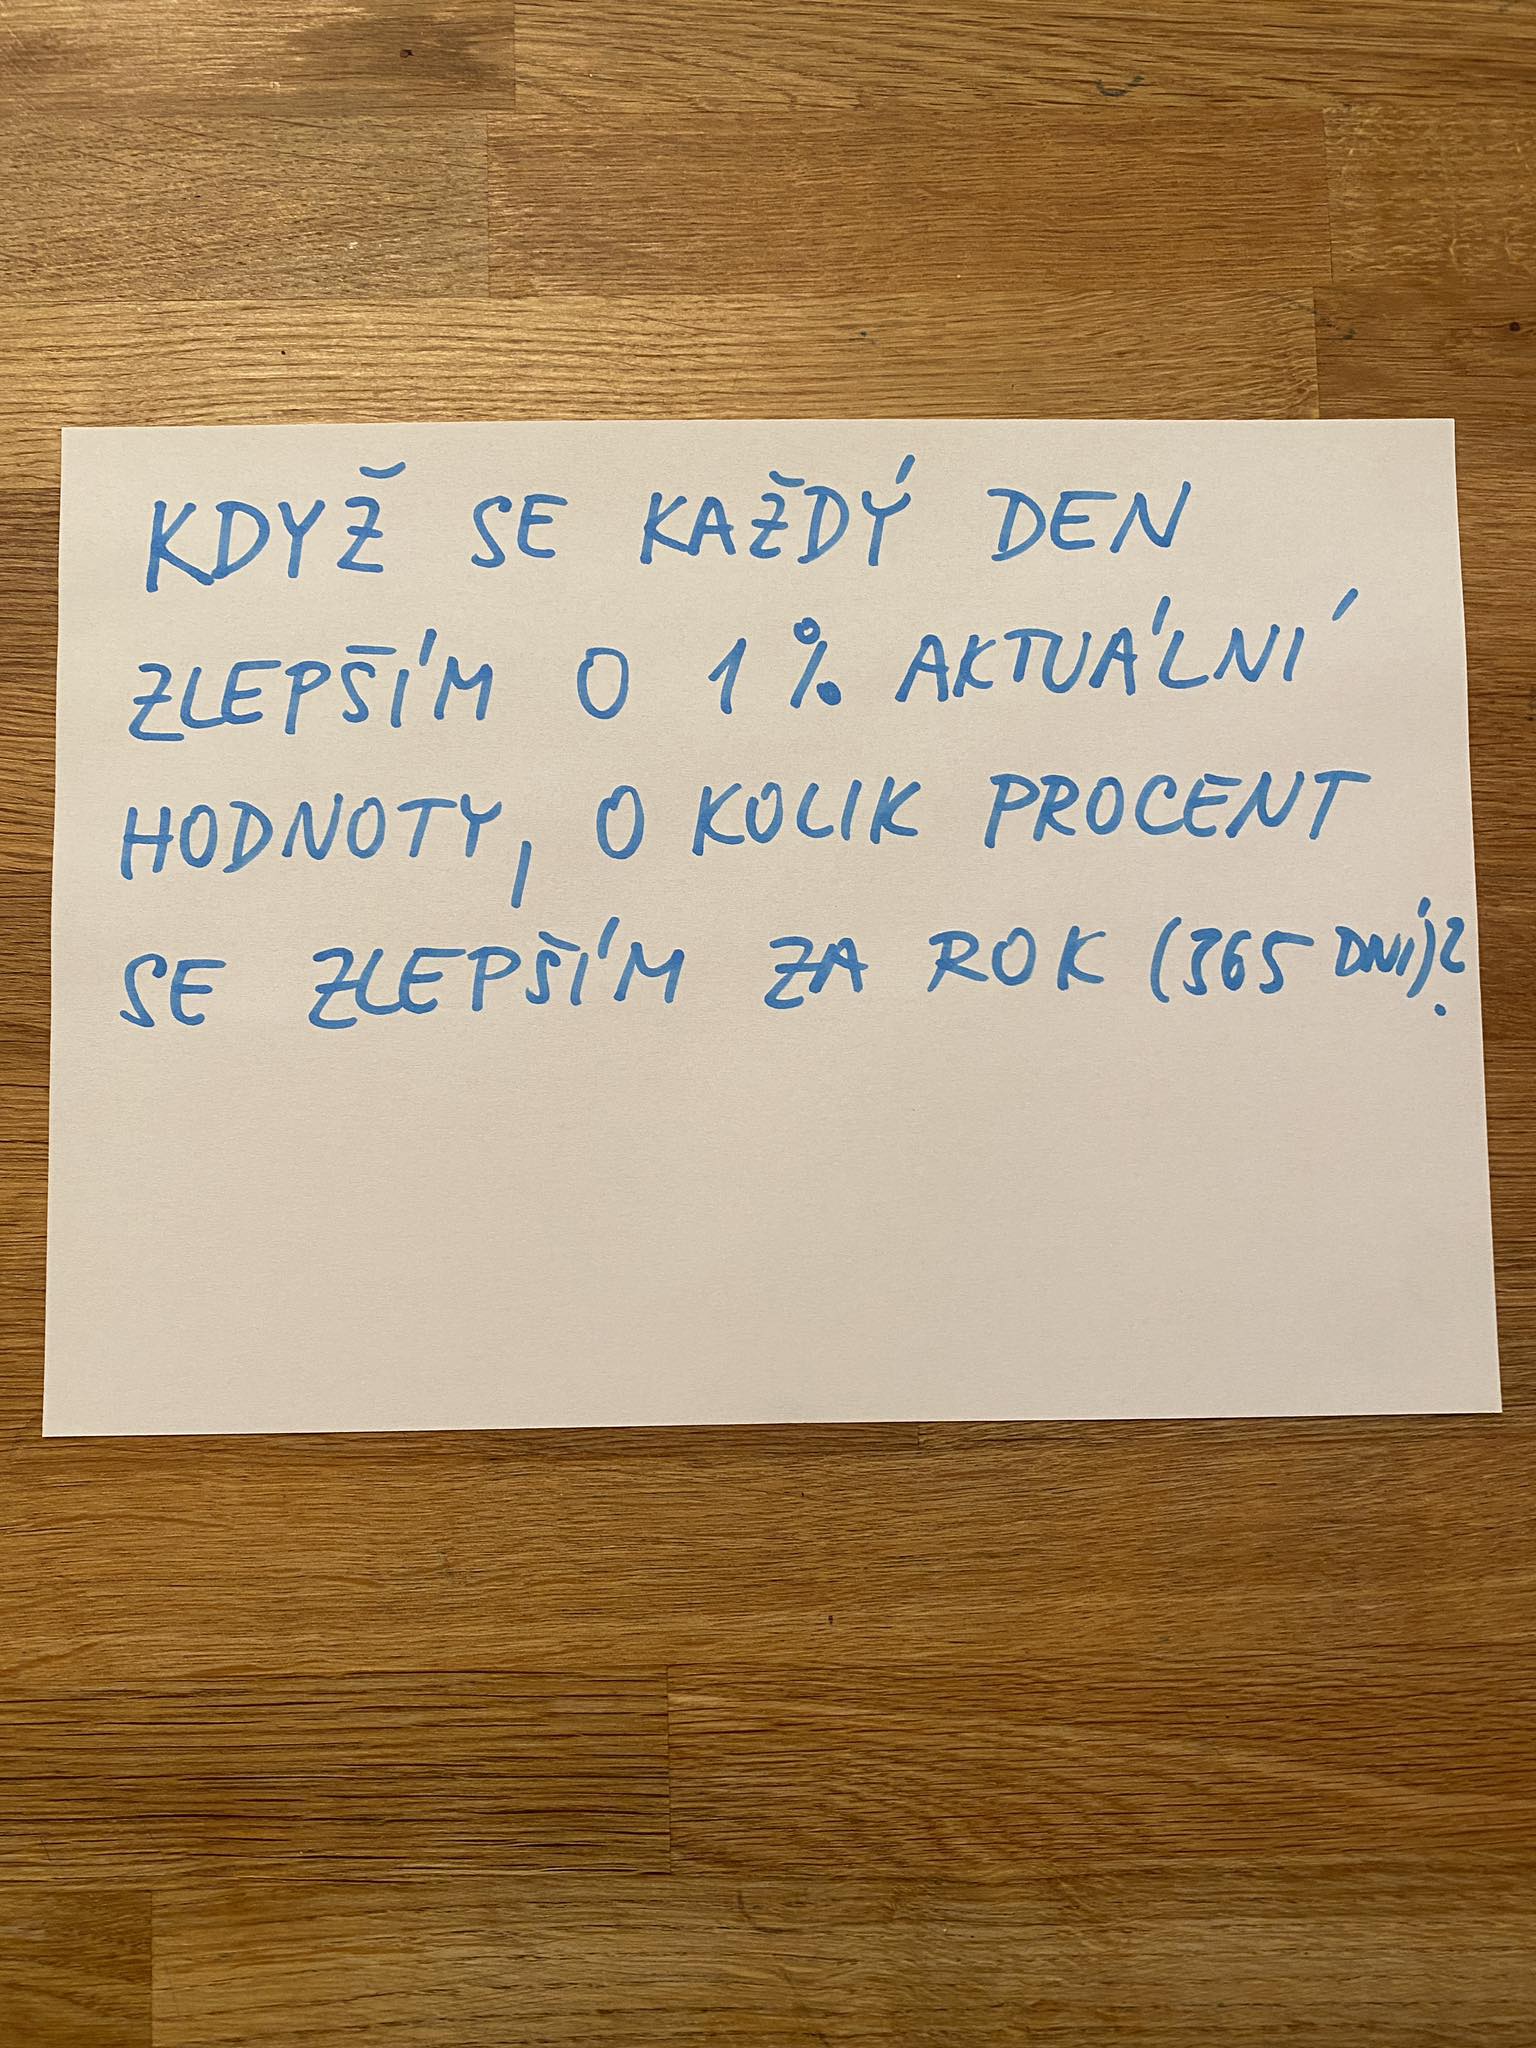 KDYŽ SE KAŽDÝ DEN
ZLEPŠÍM O 1% AKTUÁLNÍ
HODNOTY, O KOLIK PROCENT
SE ZLEPŠÍM ZA ROK (365 DNÍ)?